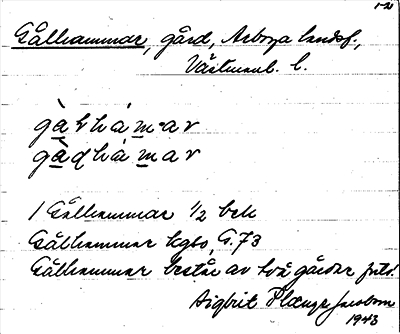 1-21
Gålhammar, gård, Arboga landsf.,
Västmanl. l.
gàhhámar
gàdhámar
1 Gålhammar 1/2 beb
Gålhammar kgbo, G.73
Gålhammar består av två gårdar
Sigbrit Plænge Jacobson
1943